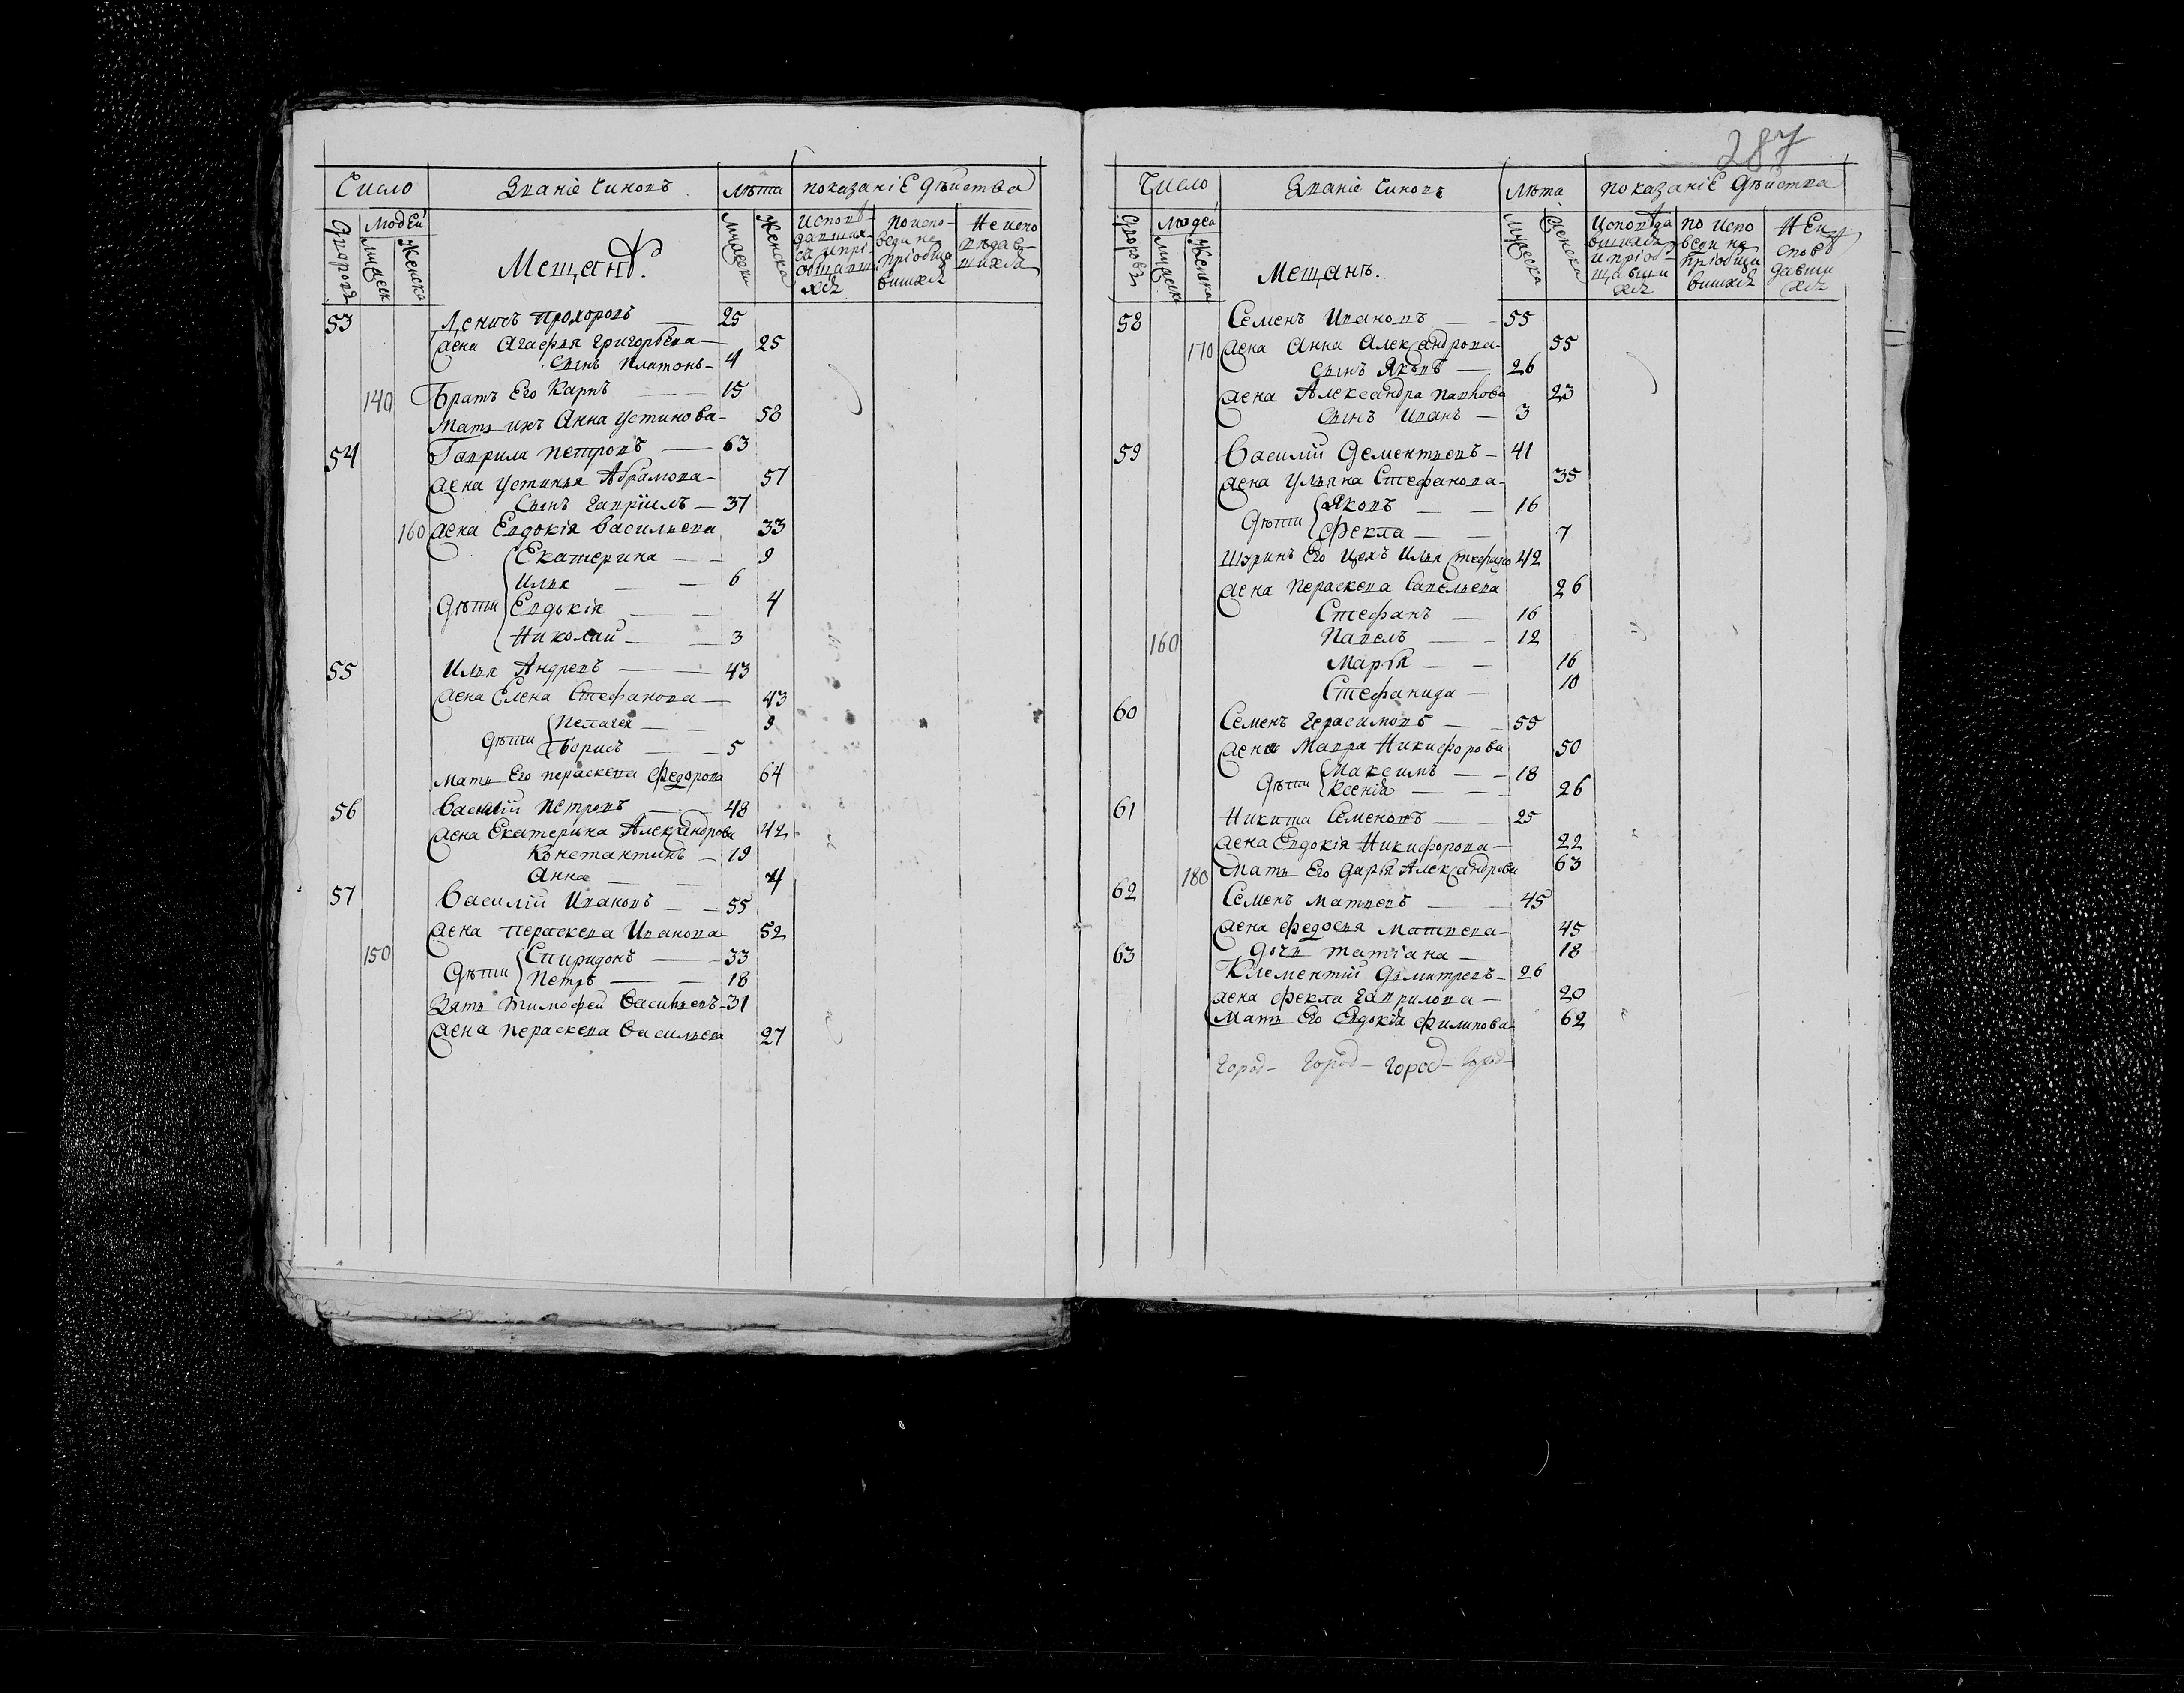 Число Званіе чиновъ Лѣта показаніе дѣйства
Дворовъ Людей Мужеска Женска Мещанъ. Мужеска Женска Исповѣдавшихся и пріобщавшихся По исповеди не пріобщавшихся Не исповѣдавшихся
53 Денисъ Прохоровъ — 25
Жена Агафья Григорьева — 25
Сынъ Платонъ — 4
140 Братъ Его Карпъ — 15
Мать ихъ Анна Устинова — 58
54 Гаврила Петровъ — 63
Жена Устинья Абрамова — 57
Сынъ Гавріилъ — 37
160 Жена Евдокія Васильева 33
Екатерина — 9
Илья — 6
Дѣти Евдокія — 4
Николай — 3
55 Илья Андревъ — 43
Жена Елена Стефанова — 43
Пелагея — 9
Дѣти Борисъ — 5
Мать Его Пераскева Федорова 64
56 Василій Петровъ — 48
Жена Екатерина Александрова 42
Констактинъ — 19
Анна — 4
57 Василій Ивановъ — 55
Жена Пераскева Иванова 52
150 Спиридонъ — 33
Дѣти Петръ — 18
Зять Тимофей Васильевъ — 31
Жена Пераскева Васильева 27
287
Число Званіе чиновъ Лѣта показаніе дѣйства
Дворовъ Людей Мужеска Женска Мещанъ. Мужеска Женска Исповѣдавшихся и пріобщавшихся По исповеди не пріобщившихся Не исповѣдавшихся
58 Семенъ Ивановъ — 55
170 Жена Анна Александрова — 55
Сынъ Яковъ — 26
Жена Александра Павлова 23
Сынъ Иванъ — 3
59 Василій Дементьевъ — 41
Жена Ульяна Стефанова — 35
Яковъ — 16
Дѣти Фекла — 7
Шуринъ Его Илья 42
Жена Пераскева Савельева 26
Стефанъ — 16
160 Павелъ — 12
Марья — 16
Стефанида — 10
60 Семенъ Герасимовъ — 55
Жена Мавра Никифорова 50
Максимъ — 18
Дѣти Ксенія — 26
61 Никита Семеновъ — 25
Жена Евдокія Никифорова — 22
180 Мать Его Дарья Александрова 63
62 Семенъ Матвевъ — 45
Жена Федосья Матвева — 45
63 Дочь Татіана — 18
Клементій Дмитревъ — 26
Жена Фекла Гаврилова — 20
Мать Его Евдокія Филипова 62
Город — Город — Город — Город —